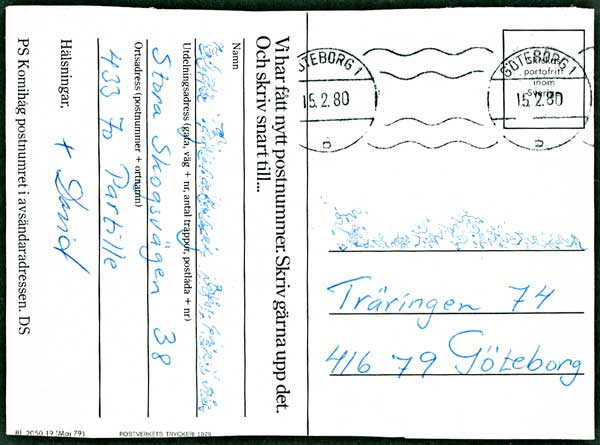 Vi har fått nytt postnummer. Skriv gärna upp det.
Och skriv snart till...
Namn
Utdelningsadress (gata, väg + nr, antal trappor, postlåda + nr)
Stora Skogsvägen 38
Ortsadress (postnummer + ortnamn)
433 70 Partille
Hälsningar,
PS Komihåg postnumret i avsändaradressen. DS
BL 2050.19 (Maj 79)
POSTVERKETS TRYCKERI 1979
GÖTEBORG 1
15.2.80
D
GÖTEBORG 1
15.2.80
D
portofritt
inom
Sverige
Träringen 74
416 79 Göteborg